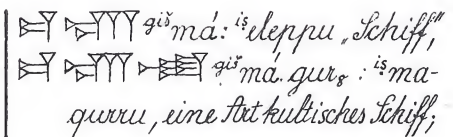 𒄑 𒈣 ᵍⁱˢ̌má: ⁱˢ̣eleppu „Schiff",
𒄑 𒈣 ᵍⁱˢ̌má.gur₈ : ⁱˢ̣ma-
qurru, eine Art kultisches Schiff;